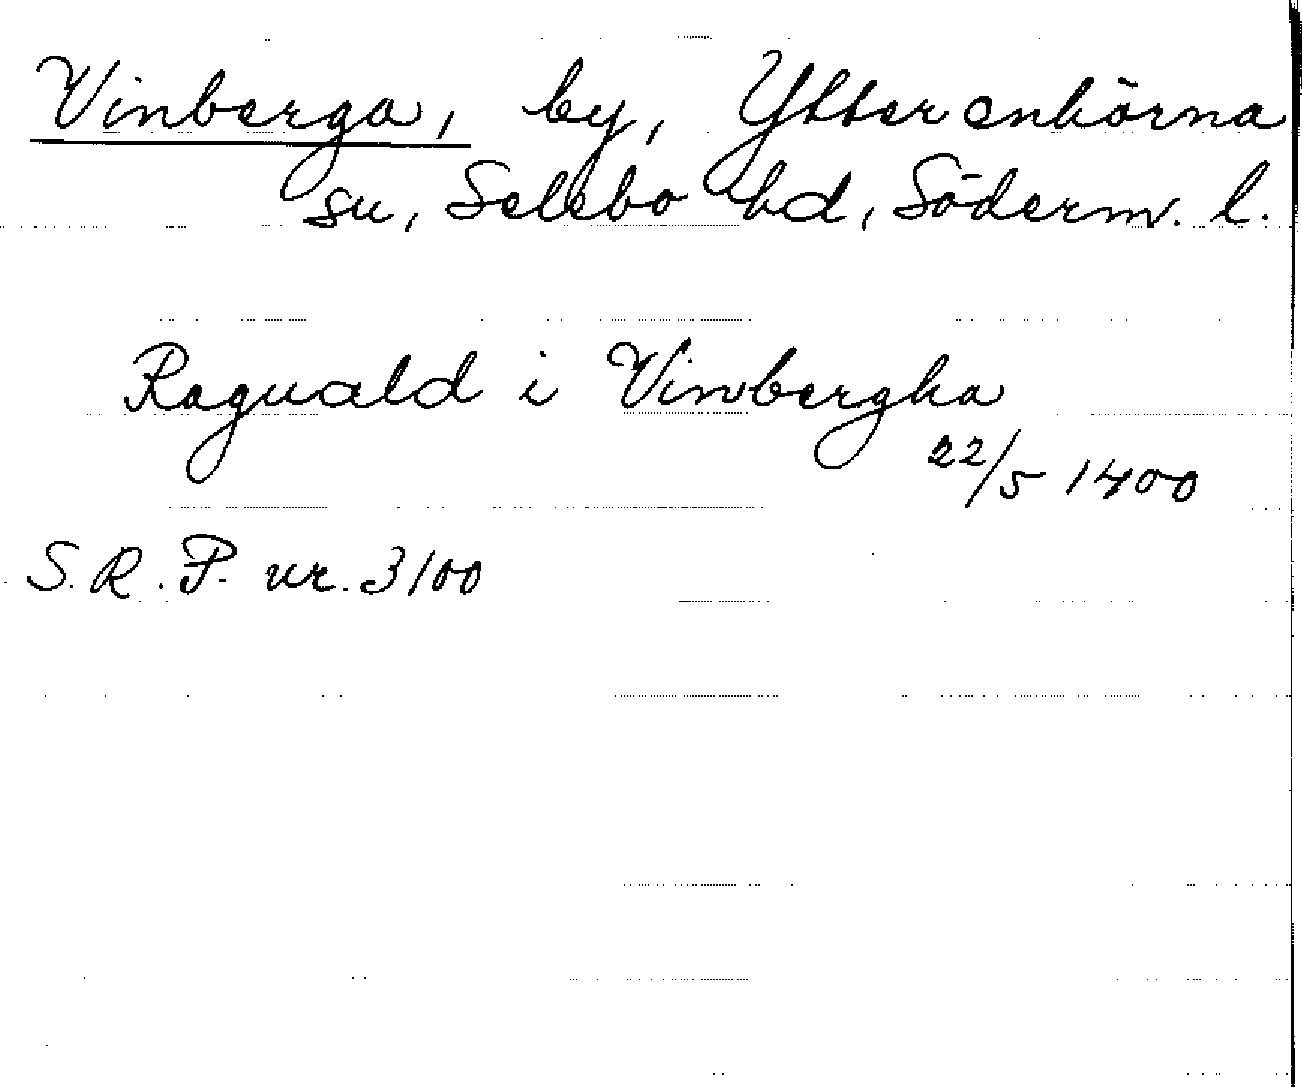 Vinberga, by, Ytterenhörna
sn, Selebo hd, Söderm. l.
Raguald i Vinbergha
22/5 1400
S.R.P. nr. 3100